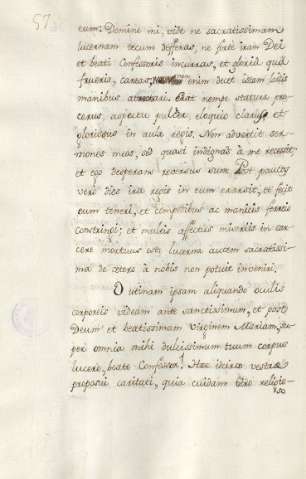 57
eum: Domine mi, vide ne sacratissimam
lucernam tecum deferas; ne forte iram Dei
et beati Confessoris incurras, et gloria qua
frueris, careas; enim decet istam talis
manibus atrectari. Erat nempe statura pro-
cerus, aspectu pulcher, eloquio clarus, et
gloriosus in aula regis. Non advertit ser-
mones meos, sed quasi indignans à me recessit;
et ego desperans reversus sum. Post paucos
vero dies ira regis in eum exarsit, et fecit
eum teneri, et compedibus ac manicis ferreis
constringi; et multis affectus miseriis in car-
cere mortuus est; lucerna autem sacratissi-
ma de cetero à nobis non potuit inveniri.
O utinam ipsam aliquando oculis
corporeis videam ante sanctissimum, et post
Deum et beatissimam Virginem Mariam, su-
per omnia mihi dulcissimum tuum corpus
lucere, beate Confessor! Haec idcirco vestrae
proposui caritati, quia cuidam viro religio-
so